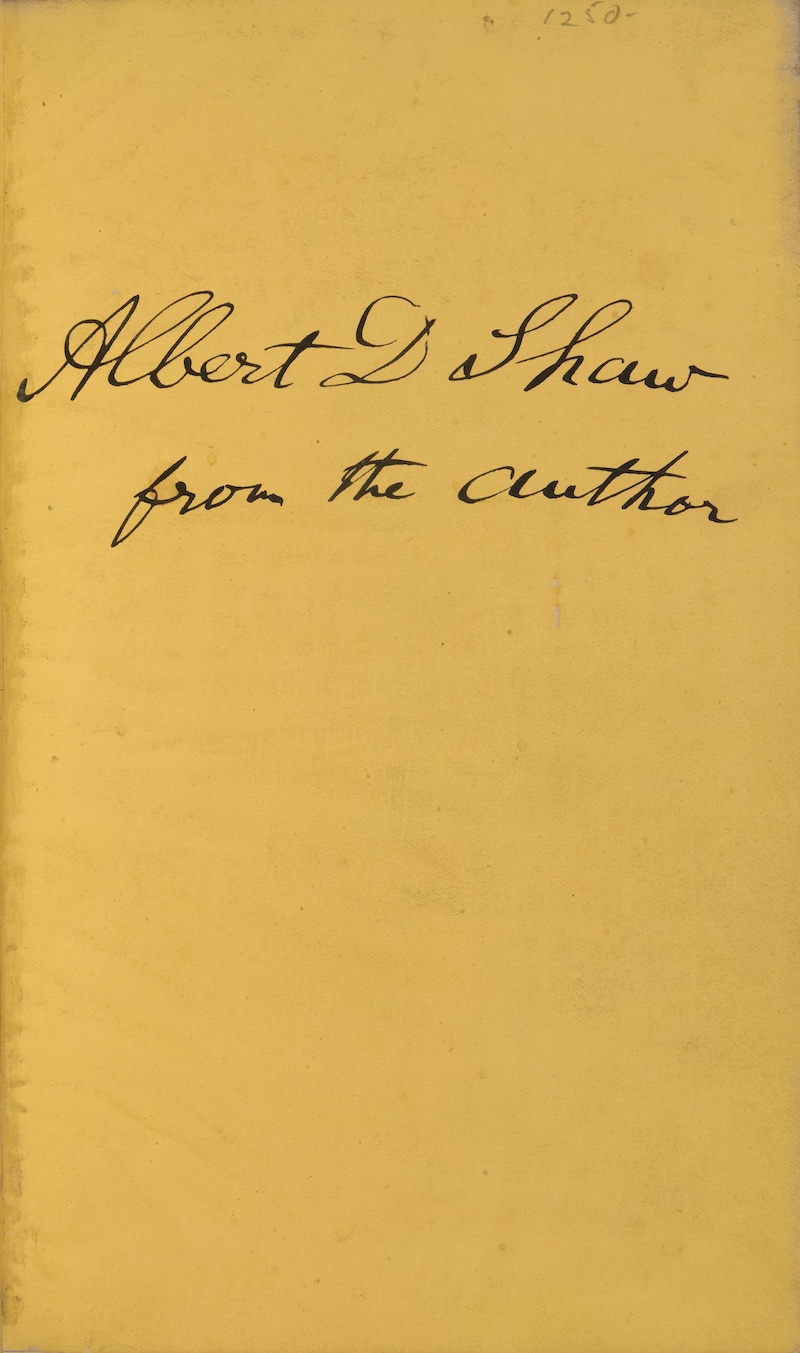 1250-
Albert D Shaw
from the author